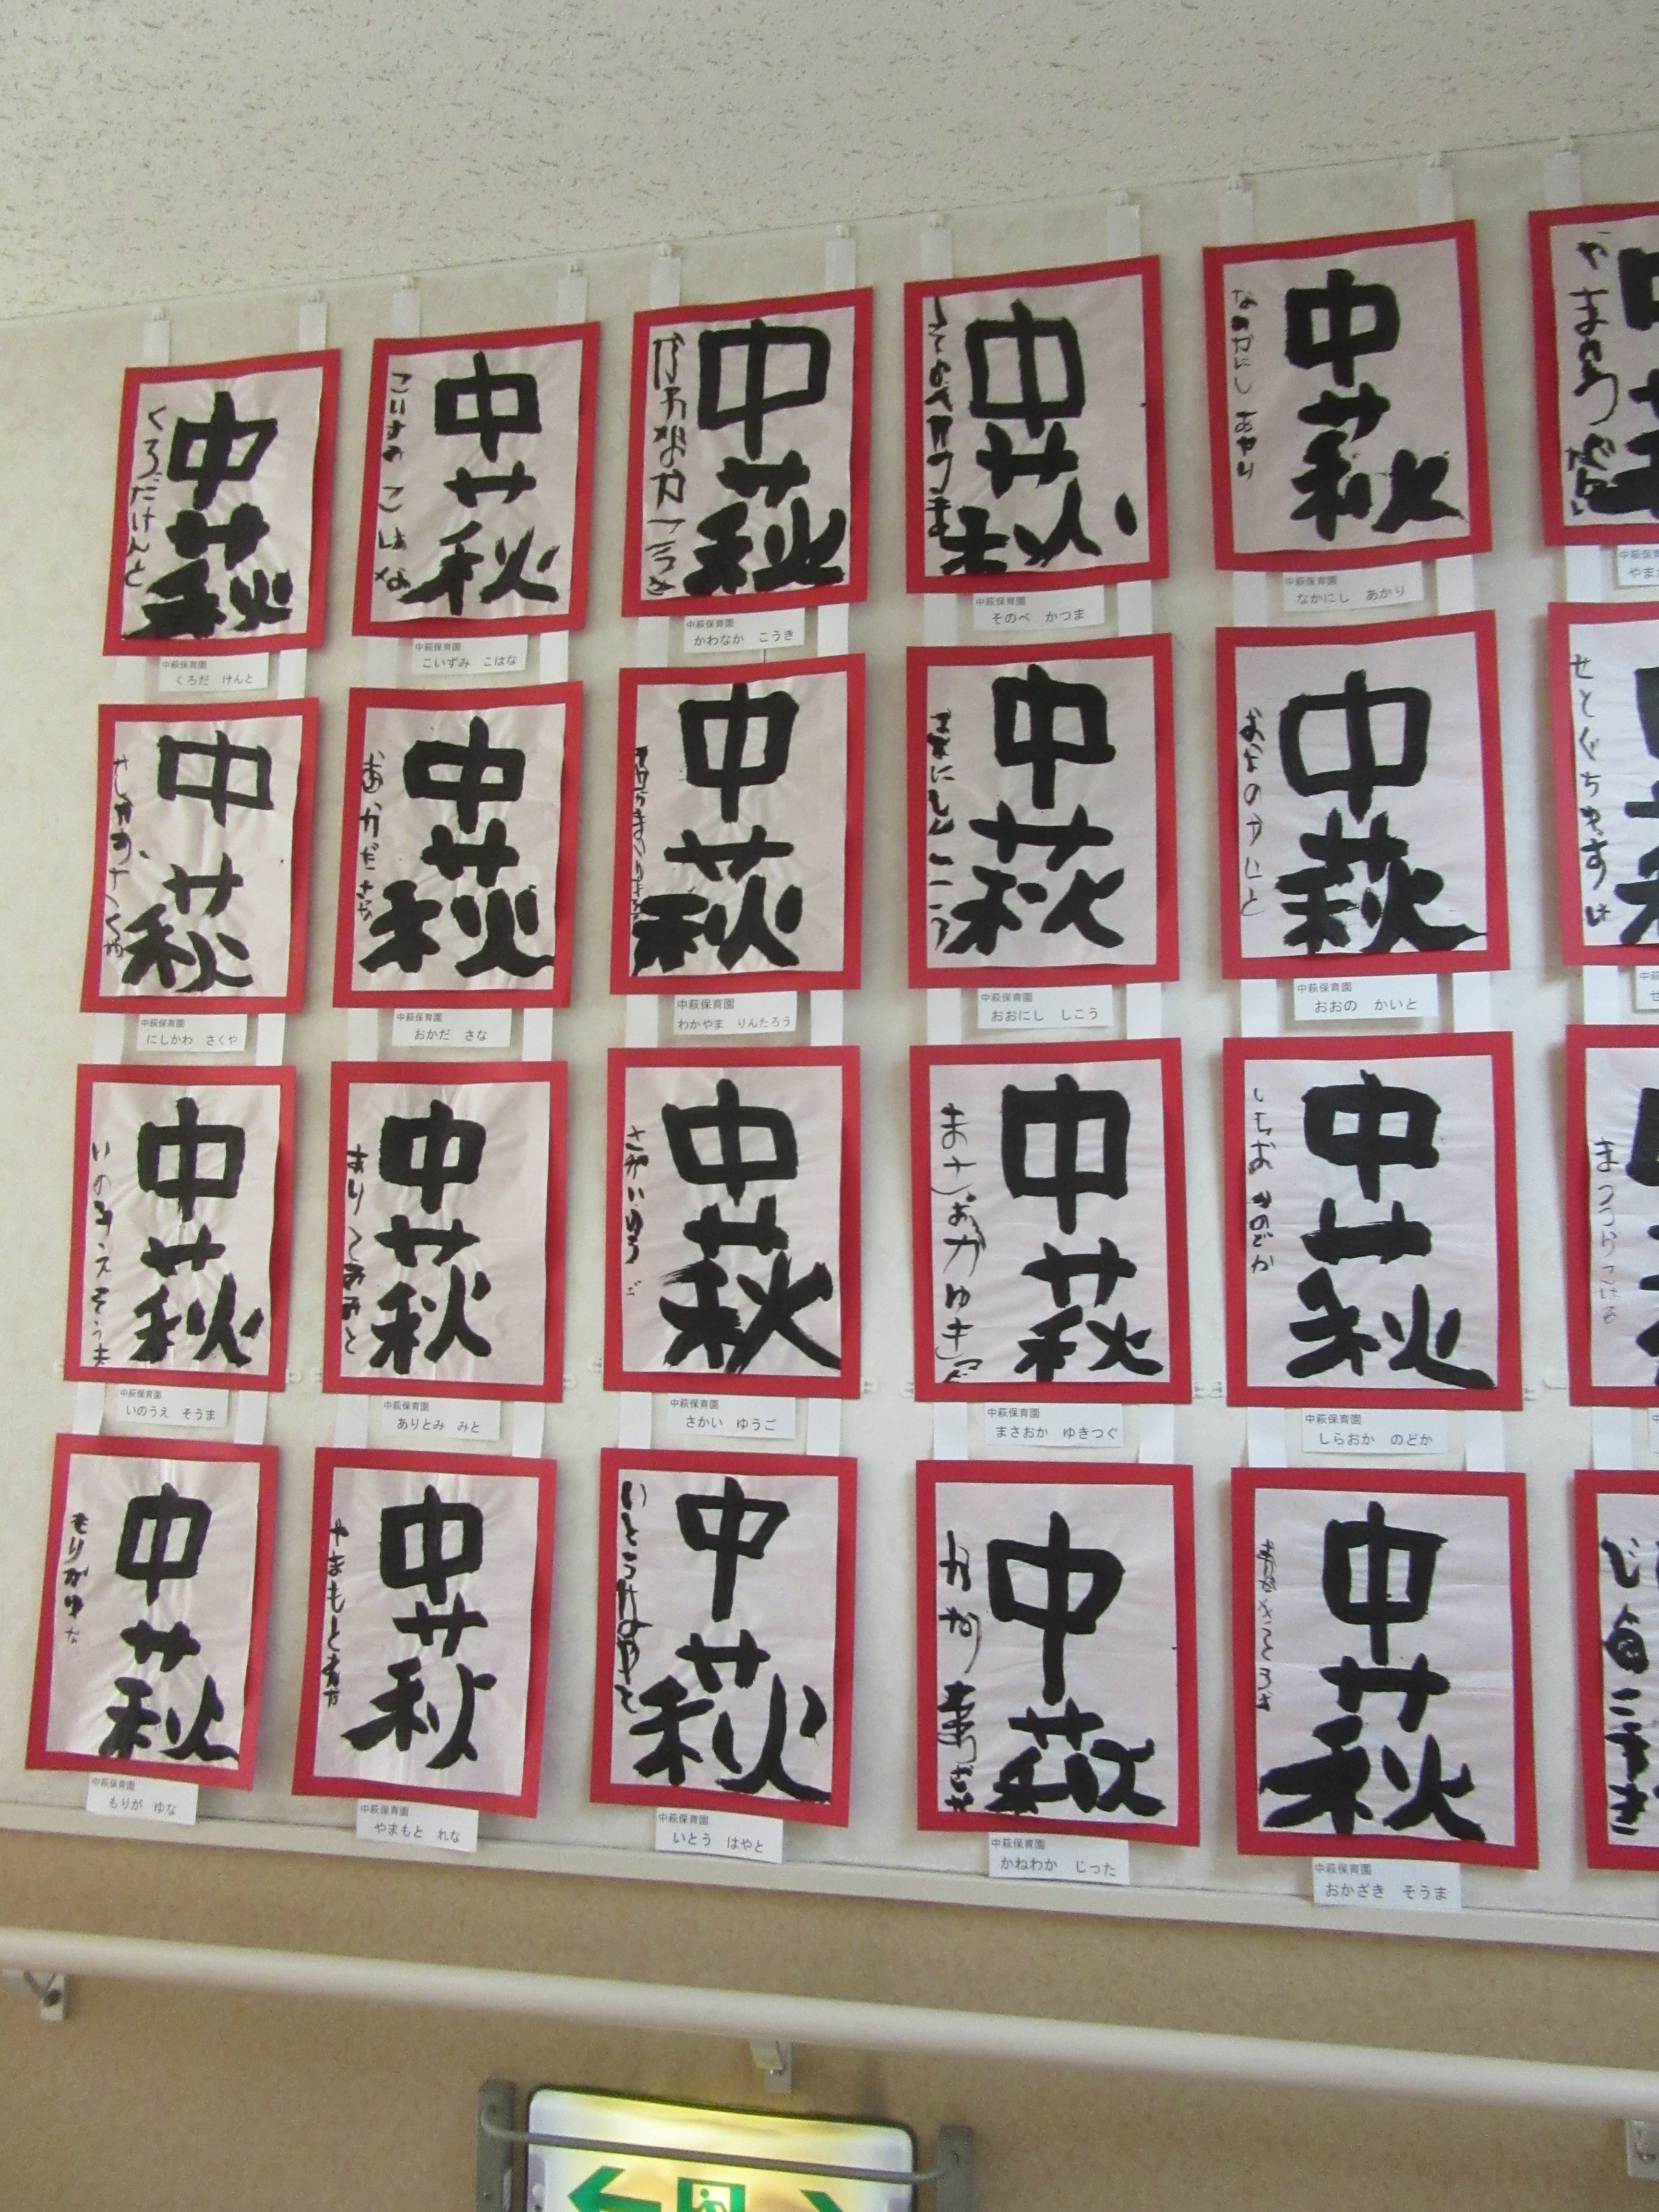 中萩
くろだけんと
中萩保育園
くろだ けんと
中萩
こいずみ こはな
中萩保育園
こいずみ こはな
中萩
中萩保育園
かわなか こうき
中萩
中萩保育園
そのべ かつま
中萩
なかにし あかり
中萩保育園
なかにし あかり
中萩
中萩保育園
にしかわ さくや
中萩
おかださな
中萩保育園
おかだ さな
中萩
中萩保育園
わかやま りんたろう
中萩
中萩保育園
おおにし しこう
中萩
おおのかいと
中萩保育園
おおの かいと
せとぐち
中萩
いのうえそうま
中萩保育園
いのうえ そうま
中萩
ありとみみと
中萩保育園
ありとみ みと
中萩
さかいゆうご
中萩保育園
さかい ゆうご
中萩
まさおかゆきつぐ
中萩保育園
まさおか ゆきつぐ
中萩
しらおかのどか
中萩保育園
しらおか のどか
中萩
もりがゆな
中萩保育園
もりが ゆな
中萩
やまもとれな
中萩保育園
やまもと れな
中萩
いとうはやと
中萩保育園
いとう はやと
中萩
中萩保育園
かねわか じった
中萩
中萩保育園
おかざき そうま